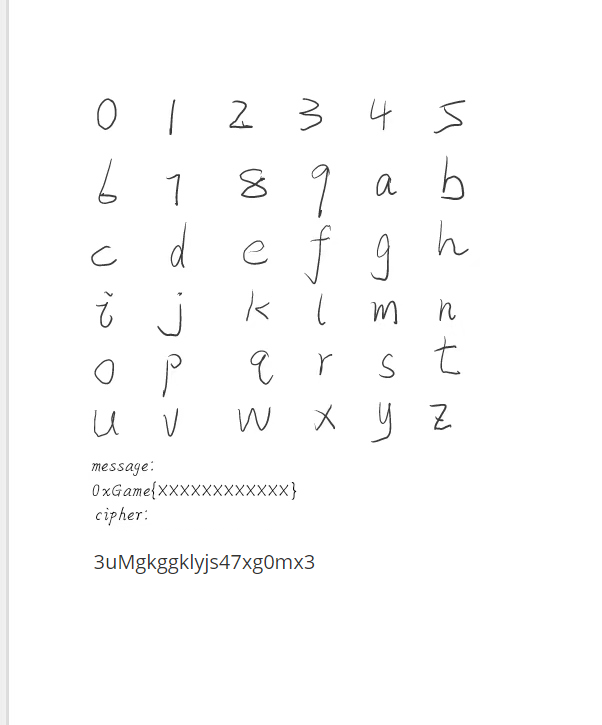 0 1 2 3 4 5
6 7 8 9 a b
c d e f g h
i j k l m n
o p q r s t
u v w x y z
message:
0xGame{XXXXXXXXXXXX}
cipher:
3uMgkggklyjs47xg0mx3